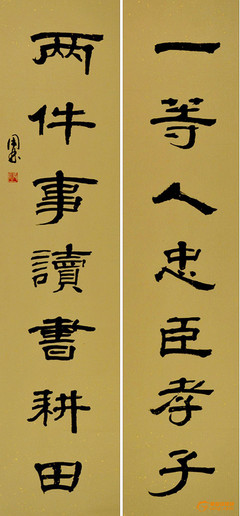 一等人忠臣孝子
两件事讀書耕田